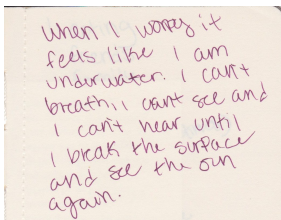 When I worry it
feels like I am
underwater. I can't
breath, I can't see and
I can't hear until
I break the surface
and see the sun
again.